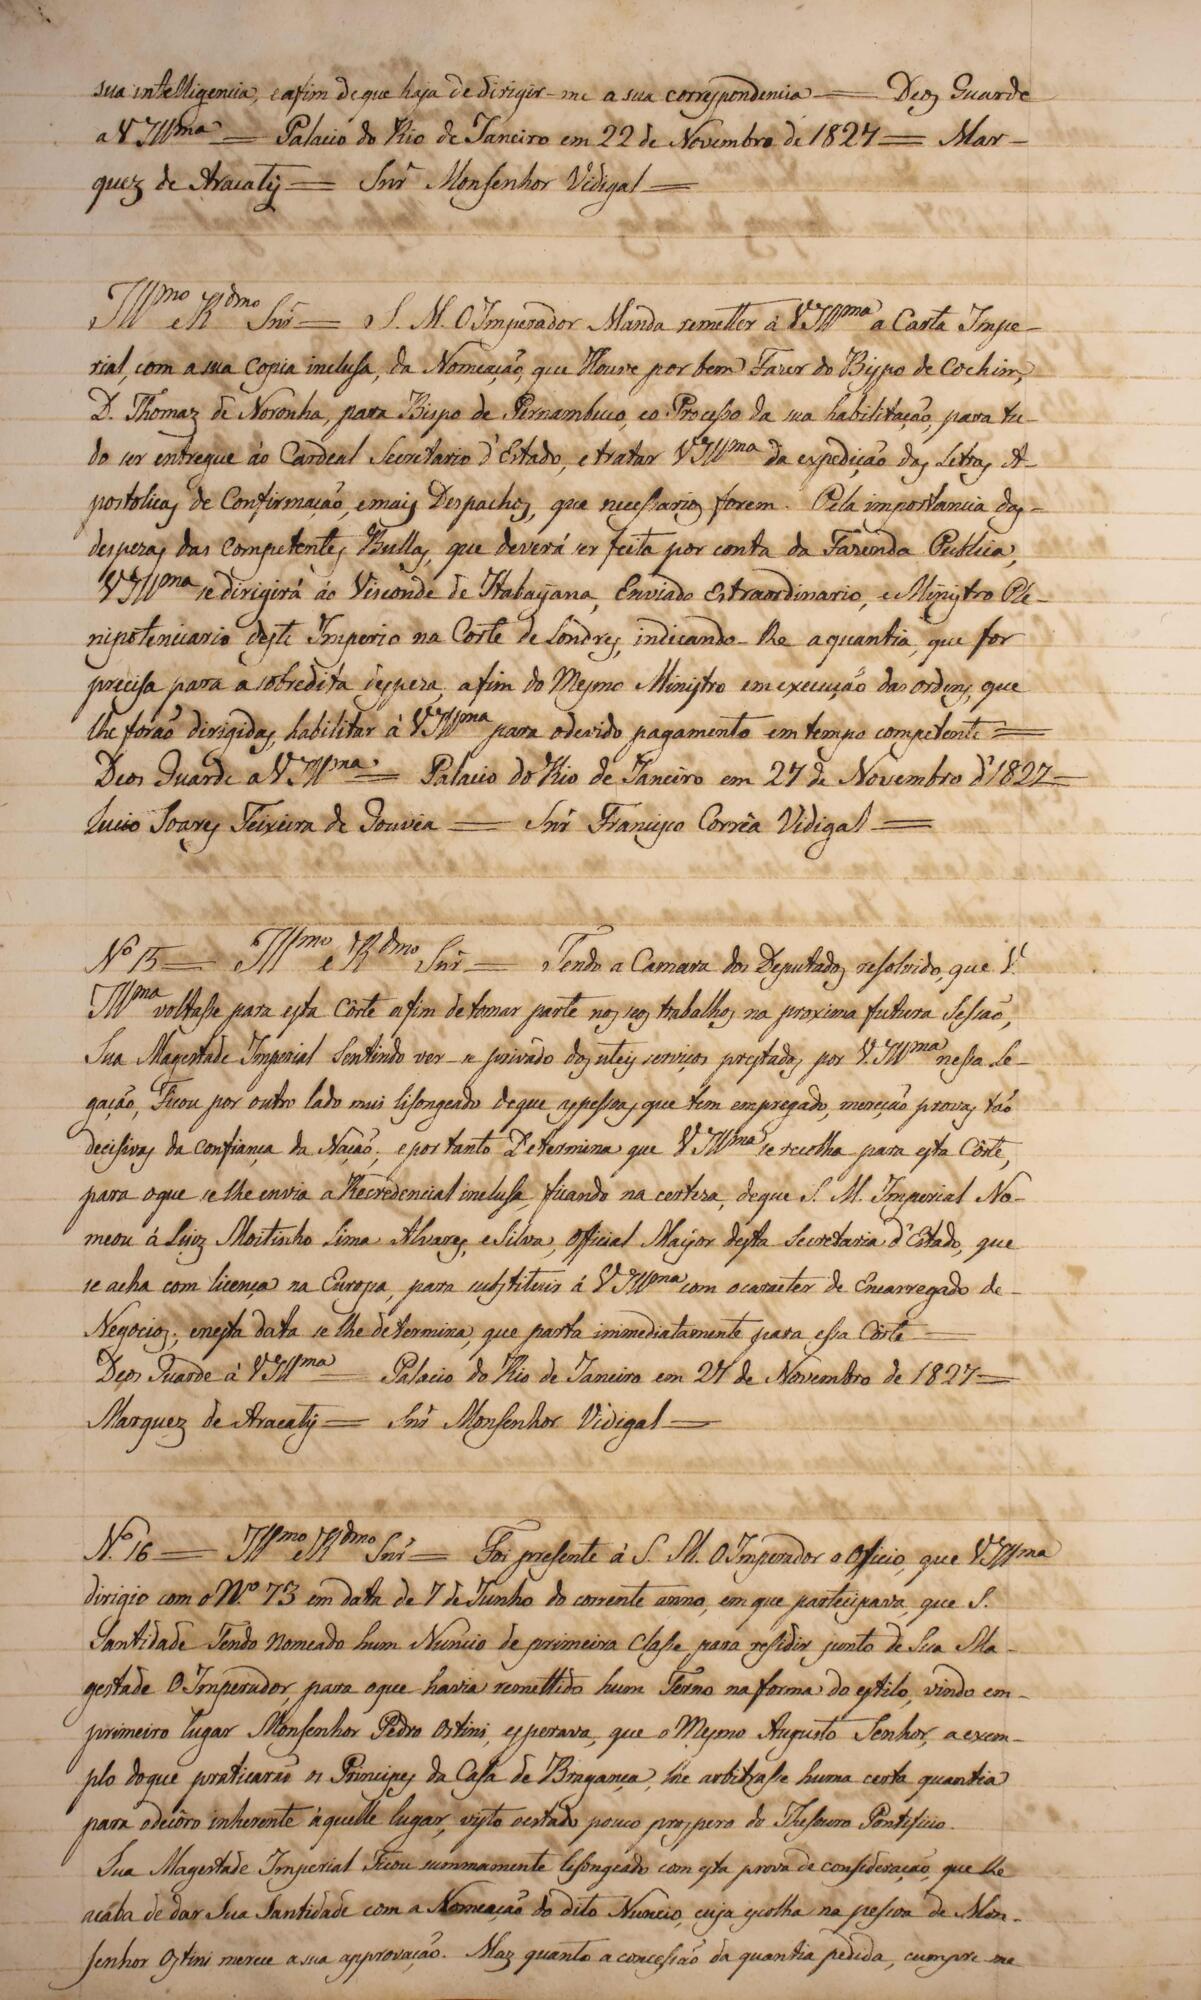 sua intelligencia, e afim de que haja de dirigir-me a sua correspondencia = Deos Guarde
a V Illma = Palacio do Rio de Janeiro em 22 de Novembro de 1827 = Mar-
quez de Aracaty = Snr Monsenhor Vidigal =
Illmo e Rdmo Snr = S. M. O Imperador Manda remetter á V Illma a Carta Impe-
rial, com a sua Copia inclusa, da Nomeação, que Houve por bem Fazer do Bispo de Cochim,
D. Thomaz de Noronha, para Bispo de Pernambuco, e o Processo da sua habilitação, para tu-
do ser entregue ao Cardeal Secretario d'Estado, e tratar V Illma da expedição das Letras A-
postolicas de Confirmação, e mais Despachos, que necessarios forem. Pela importancia das
despezas das competentes Bullas, que deverá ser feita por conta da Fazenda Publica,
V Illma se dirigirá ao Visconde de Itabayana, Enviado Extraordinario, e Ministro Ple-
nipotenciario deste Imperio na Corte de Londres, indicando-lhe a quantia, que for
precisa para a sobredita despeza, afim do Mesmo Ministro em execução das ordens, que
lhe forão dirigidas, habilitar á V Illma para o devido pagamento em tempo competente =
Deos Guarde a V Illma = Palacio do Rio de Janeiro em 27 de Novembro d'1827 =
Lucio Soares Teixeira de Gouvêa = Snr Francisco Corrêa Vidigal =
No 15 = Illmo e Rdmo Snr = Tendo a Camara dos Deputados resolvido, que V.
Illma voltasse para esta Côrte afim de tomar parte nos seos trabalhos na proxima futura Sessão,
Sua Magestade Imperial Sentindo ver-se privado dos uteis serviços prestados por V. Illma nessa Le-
gação, Ficou por outro lado mui lisongeado de que as pessoas, que tem empregado, mereção provas tão
decisivas da confiança da Nação; e por tanto Determina que V Illma se recolha para esta Côrte,
para o que se lhe envia a Recredencial inclusa, ficando na certeza, de que S. M. Imperial No-
meou á Luiz Moitinho Lima Alvares, e Silva, Official Maijor desta Secretaria d'Estado, que
se acha com licença na Europa, para substituir á V Illma com o caracter de Encarregado de
Negocios; e nesta data se lhe determina, que parta immediatamente para essa Côrte =
Deos Guarde á V Illma = Palacio do Rio de Janeiro em 27 de Novembro de 1827 =
Marquez de Aracaty = Snr Monsenhor Vidigal =
No. 16 = Illmo e Rdmo Snr = Foi presente á S. M. O Imperador o Officio, que V Illma
dirigio com o No. 73 em data de 7 de Junho do corrente anno, em que participava, que S.
Santidade Tendo nomeado hum Nuncio de primeira classe para residir junto de Sua Ma-
gestade O Imperador, para o que havia remettido hum Terno na forma do estilo, vindo em
primeiro lugar Monsenhor Pedro Ostini, esperava, que o Mesmo Augusto Senhor, a exem-
plo do que praticarão os Principes da Casa de Bragança, lhe arbitrasse huma certa quantia
para o decôro inherente áquelle lugar, visto o estado pouco prospero do Thesouro Pontificio.
Sua Magestade Imperial Ficou summamente lisongeado com esta prova de consideração, que lhe
acaba de dar Sua Santidade com a Nomeação do dito Nuncio, cuja escolha na pessoa de Mon-
senhor Ostini merece a sua approvação. Maz quanto a concessão da quantia pedida, cumpre-me